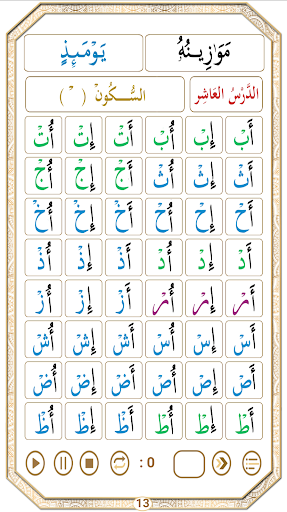 مَوَٰزِينُهُۥ يَوْمَئِذٍ
الدَّرْسُ العَاشِر السُّكُونْ ( ْ )
أَبْ إِبْ أُبْ أَتْ إِتْ أُتْ
أَثْ إِثْ أُثْ أَجْ إِجْ أُجْ
أَحْ إِحْ أُحْ أَخْ إِخْ أُخْ
أَدْ إِدْ أُدْ أَذْ إِذْ أُذْ
أَرْ إِرْ أُرْ أَزْ إِزْ أُزْ
أَسْ إِسْ أُسْ أَشْ إِشْ أُشْ
أَصْ إِصْ أُصْ أَضْ إِضْ أُضْ
أَطْ إِطْ أُطْ أَظْ إِظْ أُظْ
: 0
13